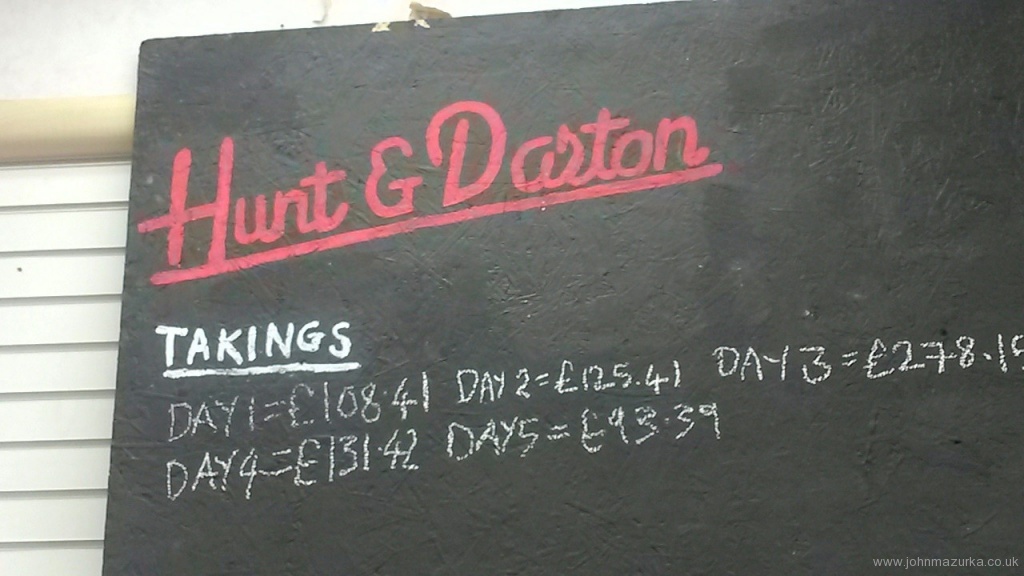 Hunt & Darton
TAKINGS
DAY 1 = £108.41 DAY 2 = £125.41 DAY 3 = £278.19
DAY 4 = £131.42 DAY 5 = £93.39
www.johnmazurka.co.uk